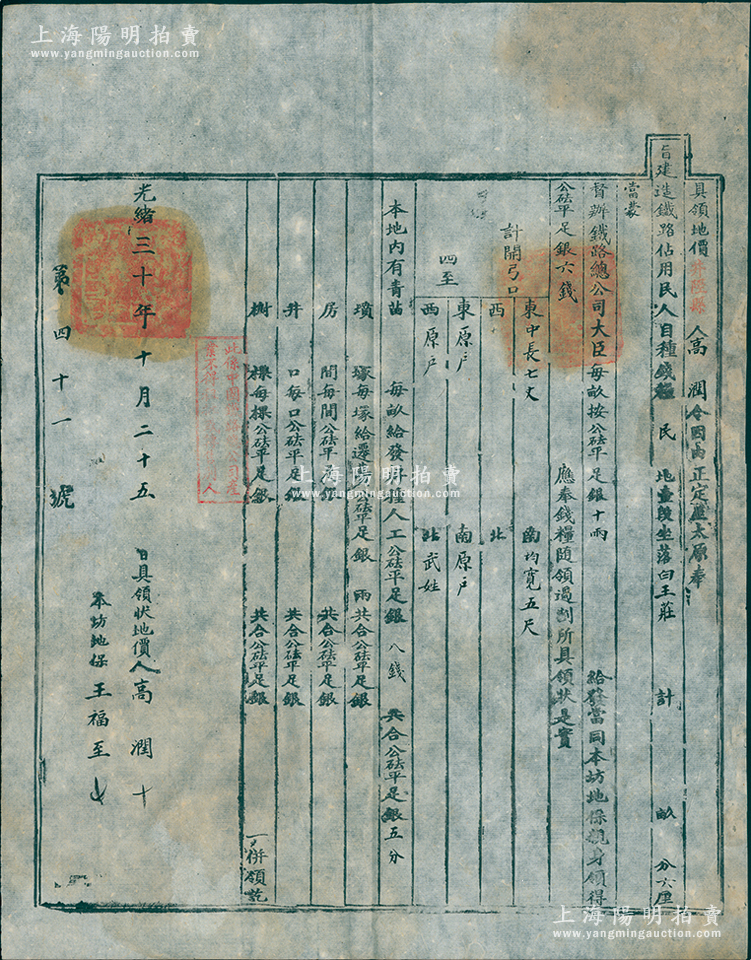 上海陽明拍賣
www.yangmingauction.com
具領地價井陘縣人高潤今因由正定至太原奉
旨建造鐵路佔用民人自種錢糧民地壹段坐落白王莊 計 畝 分六厘
當蒙
督辦鐵路總公司大臣每畝按公砝平足銀十兩 給發當同本坊地保親身領得
公砝平足銀六錢 應奉錢糧隨領過割所具領狀是實
計開弓口 東中長七丈 南均寬五尺
西 北
四至 東原戶 南原戶
西原戶 北武姓
本地內有青苗 每畝給發 人工公砝平足銀 八錢 共合公砝平足銀五分
墳 塚每塚給遷 公砝平足銀 兩共合公砝平足銀
房 間每間公砝平足銀 共合公砝平足銀
井 口每口公砝平足銀 共合公砝平足銀
樹 棵每棵公砝平足銀 共合公砝平足銀 一併領訖
此係中國鐵路總公司產
業不得 人
光緒三十年十月二十五日具領狀地價人高潤十
本坊地保王福至
第四十一號
上海陽明拍賣
www.yangmingauction.com
上海陽明拍賣
www.yangmingauction.com